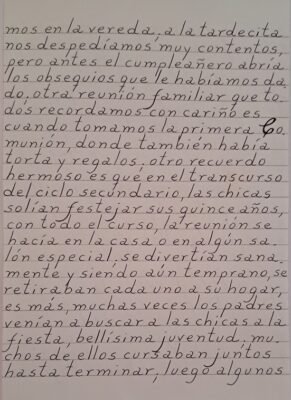 mos en la vereda, a la tardecita
nos despedíamos muy contentos,
pero antes el cumpleañero abría
los obsequios que le habíamos da
do, otra reunión familiar que to
dos recordamos con cariño es
cuando tomamos la primera Co
munión, donde también había
torta y regalos, otro recuerdo
hermoso es que en el transcurso
del ciclo secundario, las chicas
solían festejar sus quince años,
con todo el curso, la reunión se
hacía en la casa o en algún sa
lón especial, se divertían sana
mente y siendo aún temprano, se
retiraban cada uno a su hogar,
es más, muchas veces los padres
venían a buscar a las chicas a la
fiesta, bellísima juventud, mu
chos de ellos cursaban juntos
hasta terminar, luego algunos